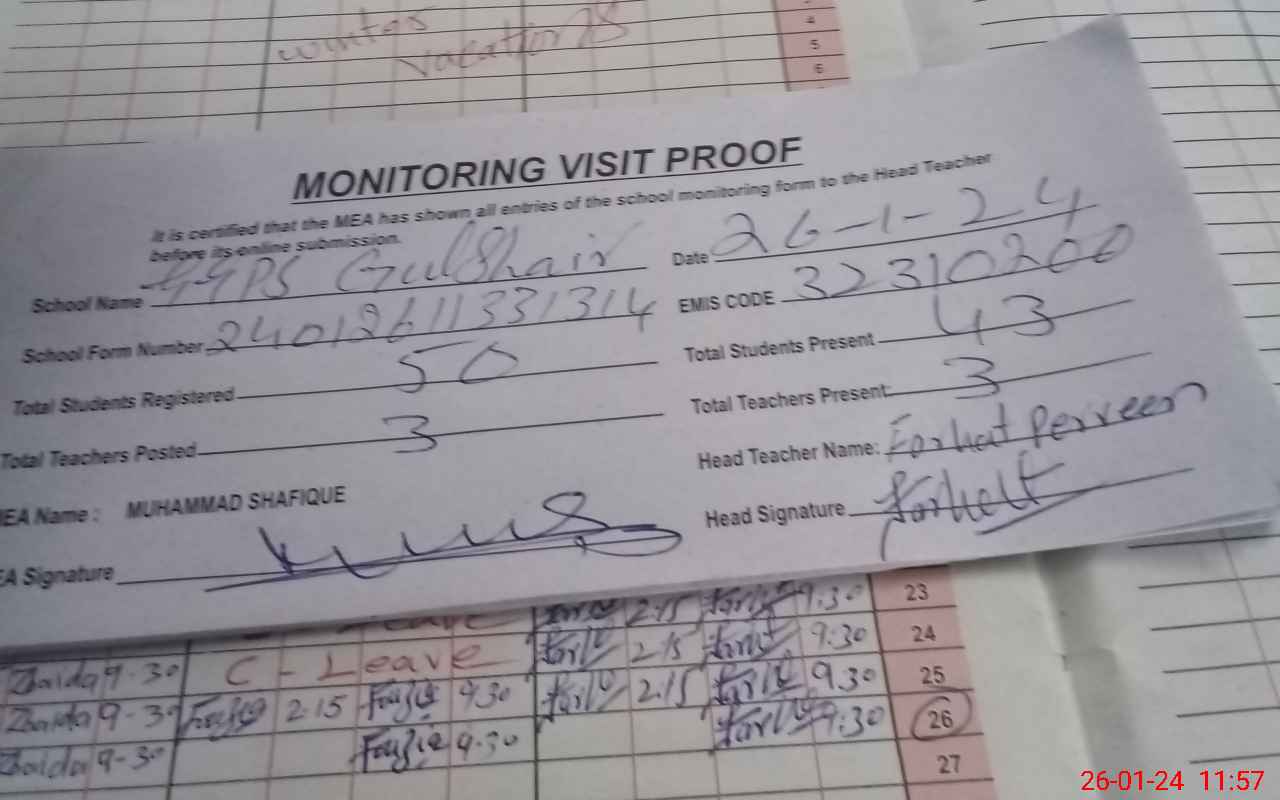 winter
vacations
4
5
6
MONITORING VISIT PROOF
It is certified that the MEA has shown all entries of the school monitoring form to the Head Teacher
before its online submission.
School Name GGPS GulShair Date 26-1-24
School Form Number 24012611331314 EMIS CODE 32310200
Total Students Registered 50 Total Students Present 43
Total Teachers Posted 3 Total Teachers Present: 3
MEA Name : MUHAMMAD SHAFIQUE Head Teacher Name: Farhat Perveen
EA Signature Head Signature Farhat
2.15 9.30 23
C - Leave 2.15 9:30 24
Zaida 9-30 2.15 9.30 2.15 9.30 25
Zaida 9-30 Fouzia 9.30 9:30 26
Zaida 9-30 27
26-01-24 11:57